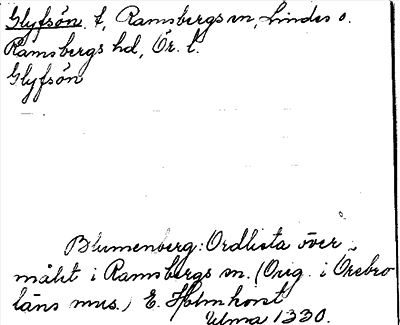 Glyfsön t, Ramsbergs sn, Lindes o.
Ramsbergs hd, Ör. l.
Glyfsön
Blumenberg: Ordlista över
målet i Ramsbergs sn. (Orig. i Örebro
läns mus.) E. Holmkvist
Ulma 1330.